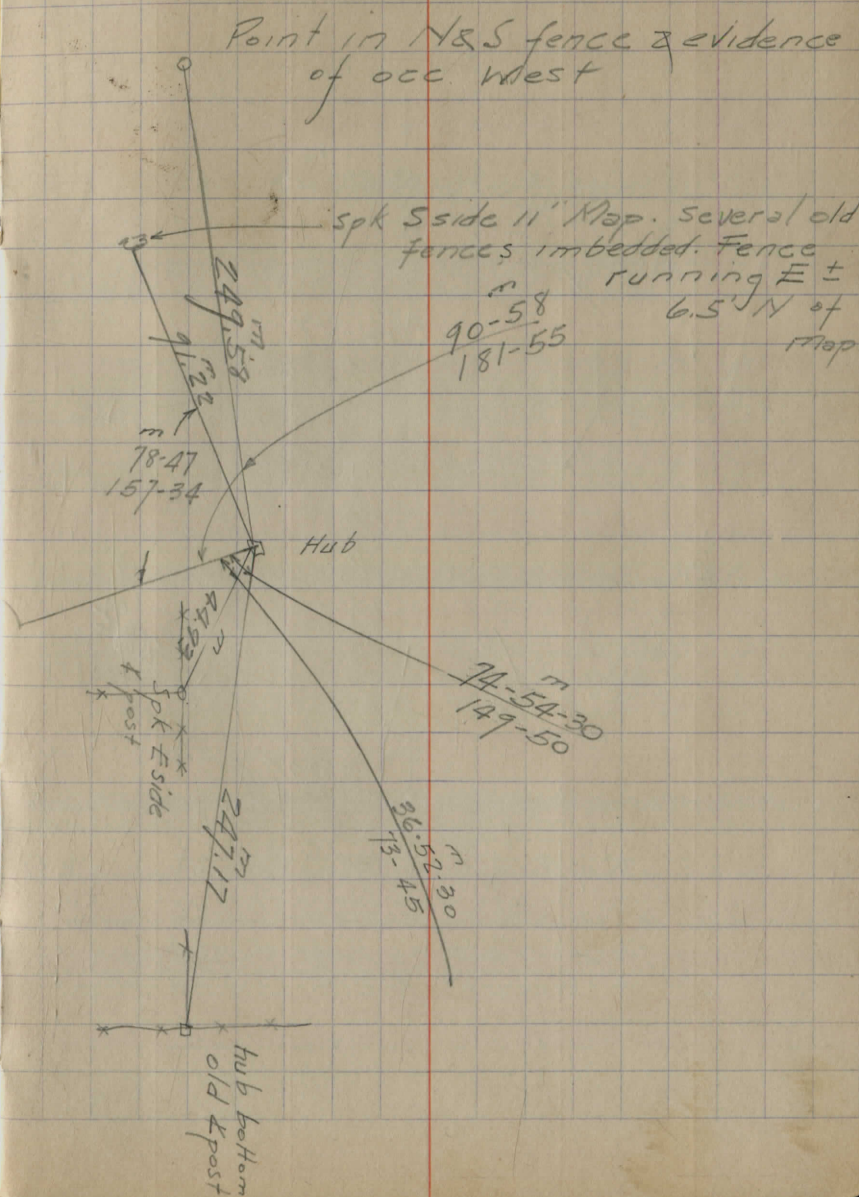 Point in N&S fence & evidence
of occ West
spk S side 11" Map. Several old
fences imbedded. Fence
running E ±
6.5' N of
Map
m
249.58
m
91.22
m
90-58
181-55
m
78-47
157-34
Hub
m
44.93
Spk E side
post
m
74-54-30
149-50
m
247.17
m
36-52-30
73-45
hub bottom
old post